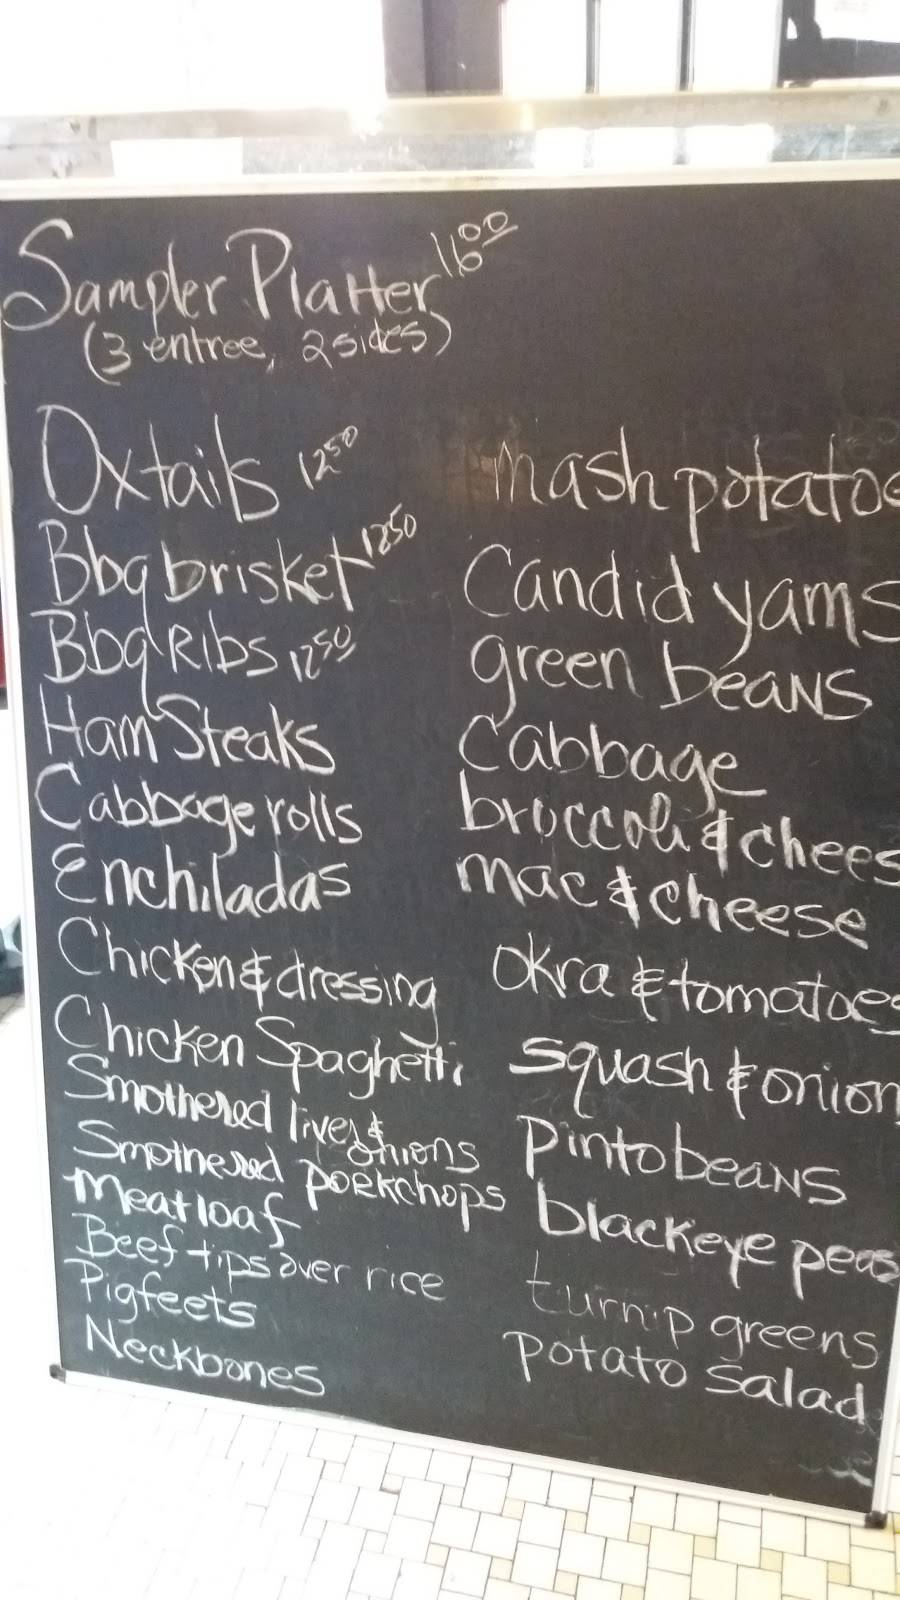 Sampler Platter 16.00
(3 entree, 2 sides)
Oxtails 12.50
Bbq brisket 12.50
Bbq Ribs 12.50
Ham Steaks
Cabbage rolls
Enchiladas
Chicken & dressing
Chicken Spaghetti
Smothered liver & onions
Smothered porkchops
Meatloaf
Beef tips over rice
Pigfeets
Neckbones
mash potatoe
Candid yams
green beans
Cabbage
broccoli & chees
mac & cheese
Okra & tomatoes
squash & onion
Pinto beans
blackeye peas
turnip greens
potato salad